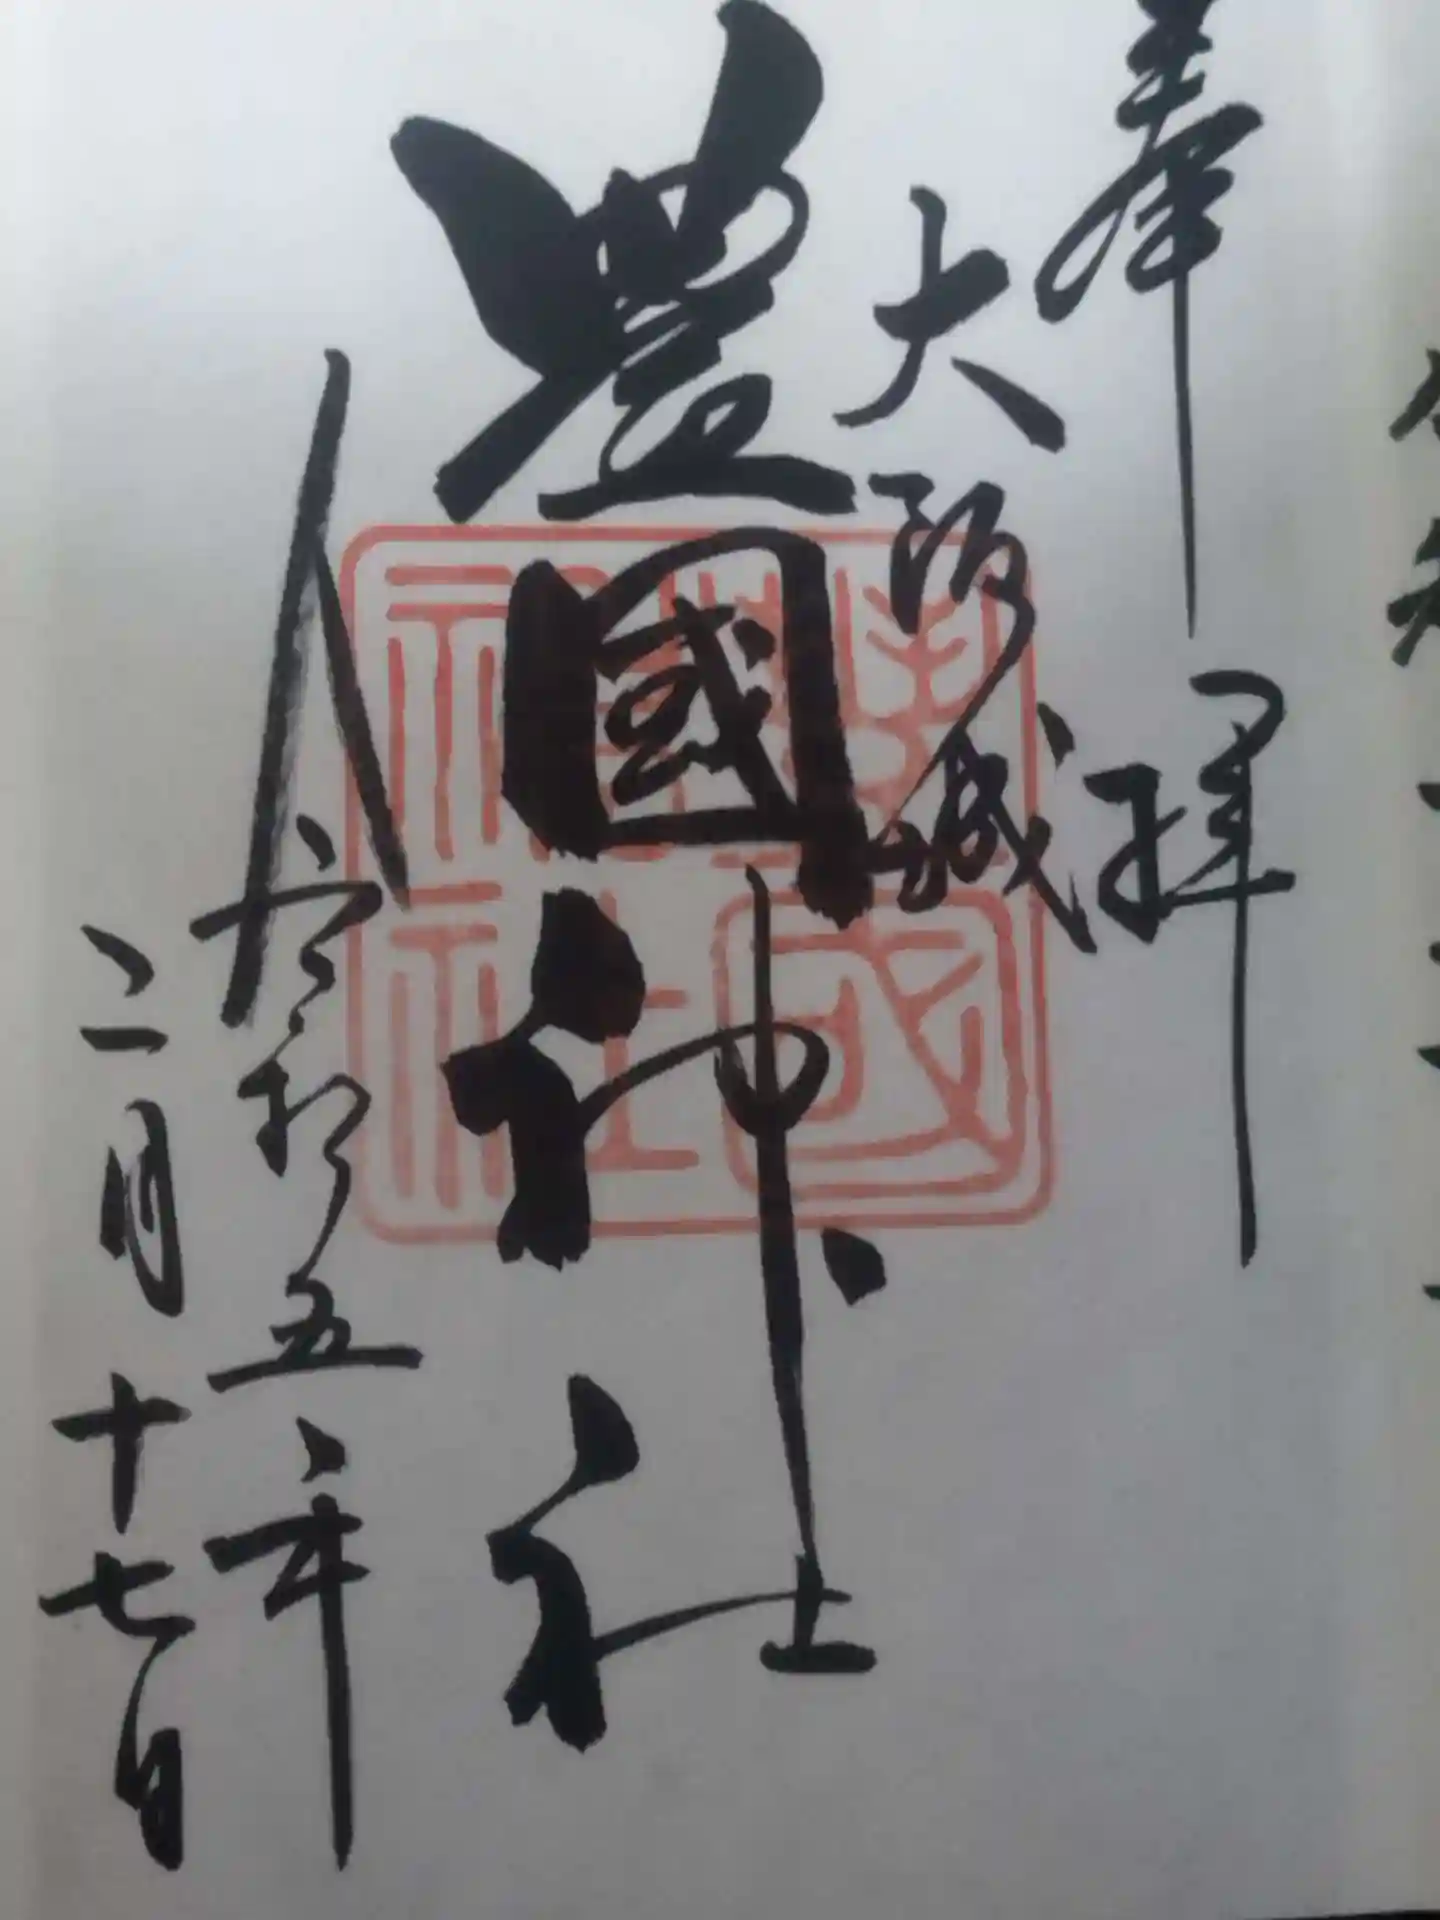 奉拝
大阪城
豊國神社
令和五年
二月十七日
豊國
神社